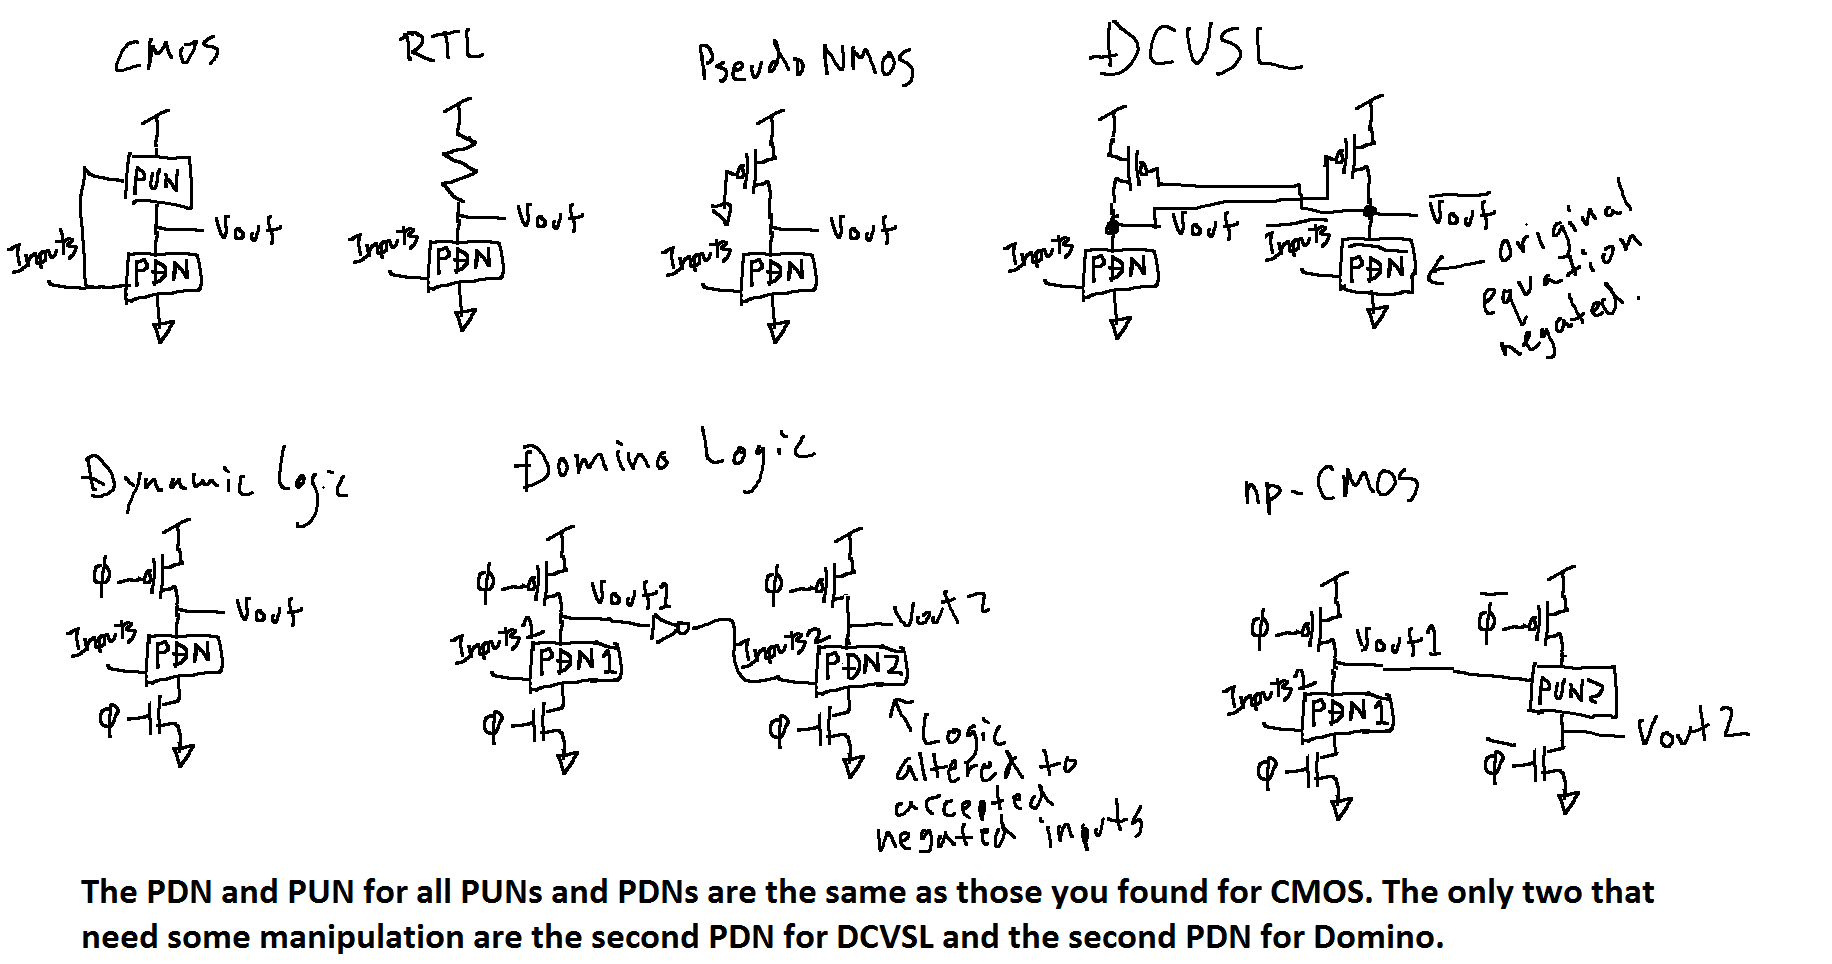 CMOS
PUN
Vout
Inputs
PDN
RTL
Vout
Inputs
PDN
Pseudo NMOS
Vout
Inputs
PDN
DCVSL
Vout
Inputs
PDN
V̅o̅u̅t̅
I̅n̅p̅u̅t̅s̅
P̅D̅N̅
original
equation
negated.
Dynamic Logic
ϕ
Vout
Inputs
PDN
ϕ
Domino Logic
ϕ
Vout1
Inputs1
PDN1
ϕ
ϕ
Vout2
Inputs2
PDN2
ϕ
Logic
altered to
accepted
negated inputs
np-CMOS
ϕ
Vout1
Inputs1
PDN1
ϕ
ϕ̅
PUN2
Vout2
ϕ̅
The PDN and PUN for all PUNs and PDNs are the same as those you found for CMOS. The only two that
need some manipulation are the second PDN for DCVSL and the second PDN for Domino.